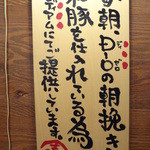 朝、D-0の朝挽き
豚を仕入れている為
ディアムにてご提供しています。